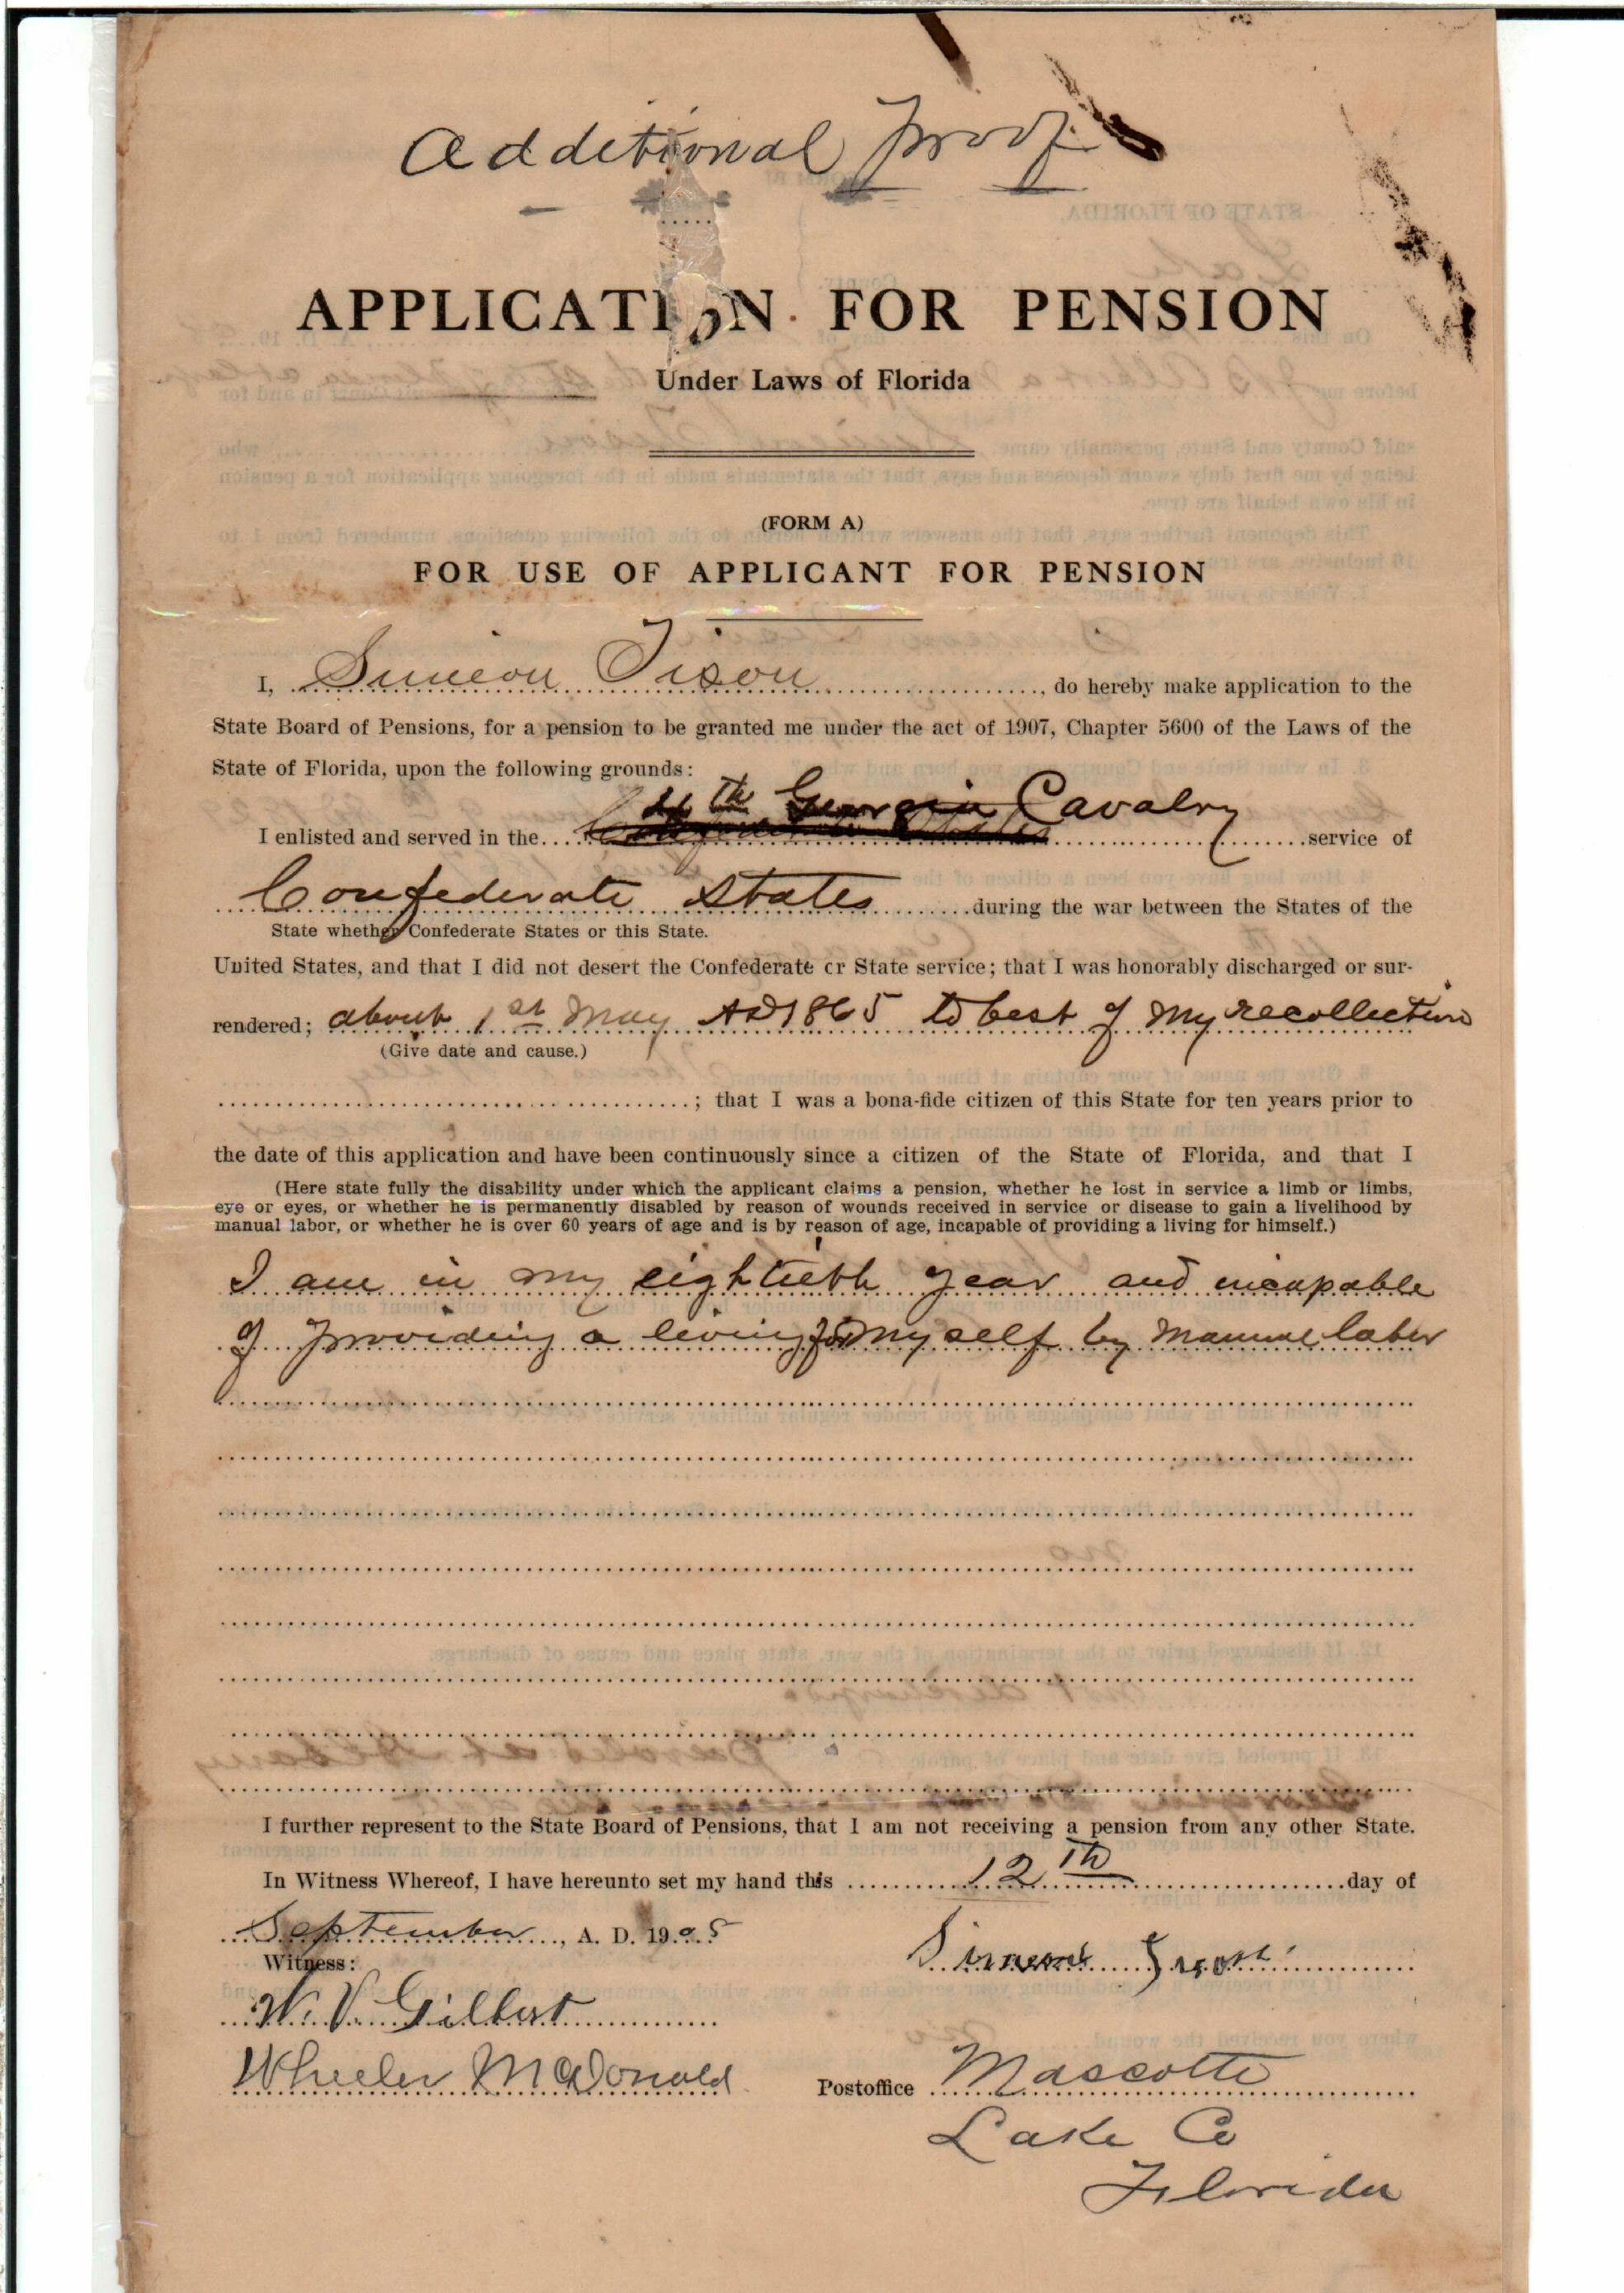 Additional Proof
APPLICATION FOR PENSION
Under Laws of Florida
(FORM A)
FOR USE OF APPLICANT FOR PENSION
I, Simeon Tison, do hereby make application to the
State Board of Pensions, for a pension to be granted me under the act of 1907, Chapter 5600 of the Laws of the
State of Florida, upon the following grounds:
4th Georgia Cavalry
I enlisted and served in the Confederate States service of
Confederate States during the war between the States of the
State whether Confederate States or this State.
United States, and that I did not desert the Confederate or State service; that I was honorably discharged or sur-
rendered; about 1st May AD 1865 to best of my recollection
(Give date and cause.)
; that I was a bona-fide citizen of this State for ten years prior to
the date of this application and have been continuously since a citizen of the State of Florida, and that I
(Here state fully the disability under which the applicant claims a pension, whether he lost in service a limb or limbs,
eye or eyes, or whether he is permanently disabled by reason of wounds received in service or disease to gain a livelihood by
manual labor, or whether he is over 60 years of age and is by reason of age, incapable of providing a living for himself.)
I am in my eightieth year and incapable
of providing a living for my self by manual labor
I further represent to the State Board of Pensions, that I am not receiving a pension from any other State.
In Witness Whereof, I have hereunto set my hand this 12th day of
September, A. D. 19
Witness: Simeon Tison
W. V. Gilbert
Wheeler McDonald Postoffice Mascotte
Lake Co
Florida